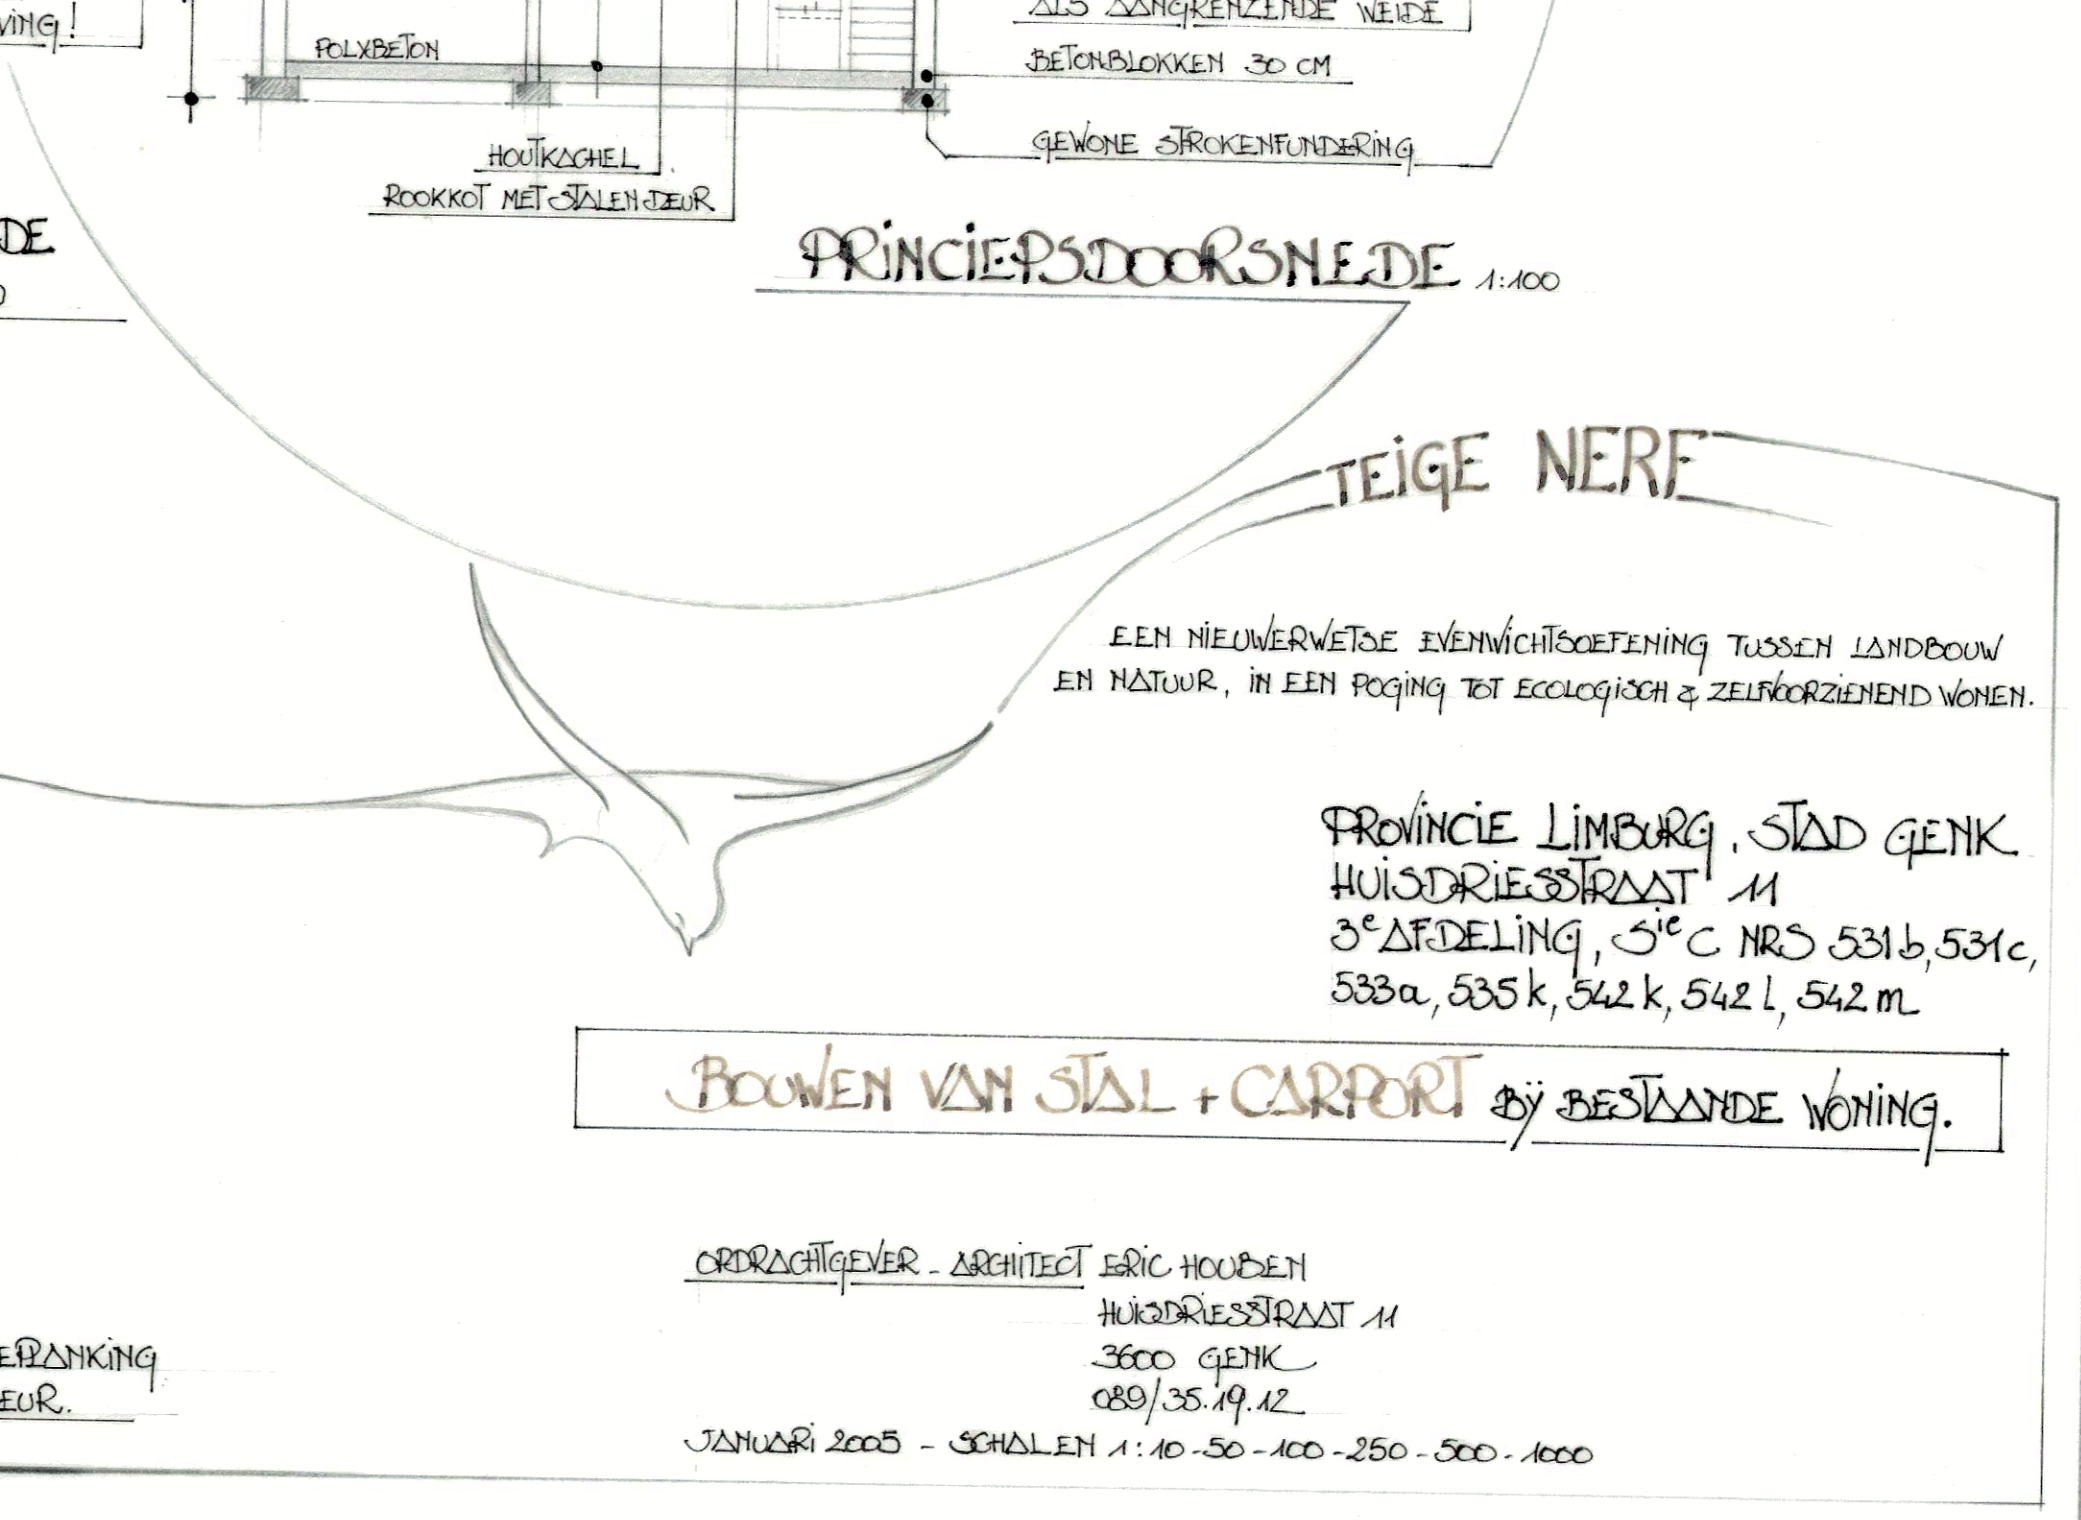 VING!
POLYBETON
ALS AANGRENZENDE WEIDE
BETONBLOKKEN 30 CM
GEWONE STROKENFUNDERING
HOUTKACHEL
ROOKKOT MET STALEN DEUR
DE
PRINCIEPSDOORSNEDE 1:100
TEIGE NERF
EEN NIEUWERWETSE EVENWICHTSOEFENING TUSSEN LANDBOUW
EN NATUUR, IN EEN POGING TOT ECOLOGISCH & ZELFVOORZIENEND WONEN.
PROVINCIE LIMBURG, STAD GENK
HUISDRIESSTRAAT 11
3e AFDELING, Sie C NRS 531b, 531c,
533a, 535k, 542k, 542l, 542m
BOUWEN VAN STAL + CARPORT BIJ BESTAANDE WONING.
OPDRACHTGEVER - ARCHITECT ERIC HOUBEN
HUISDRIESSTRAAT 11
3600 GENK
089/35.19.12
EPLANKING
EUR.
JANUARI 2005 - SCHALEN 1:10-50-100-250-500-1000